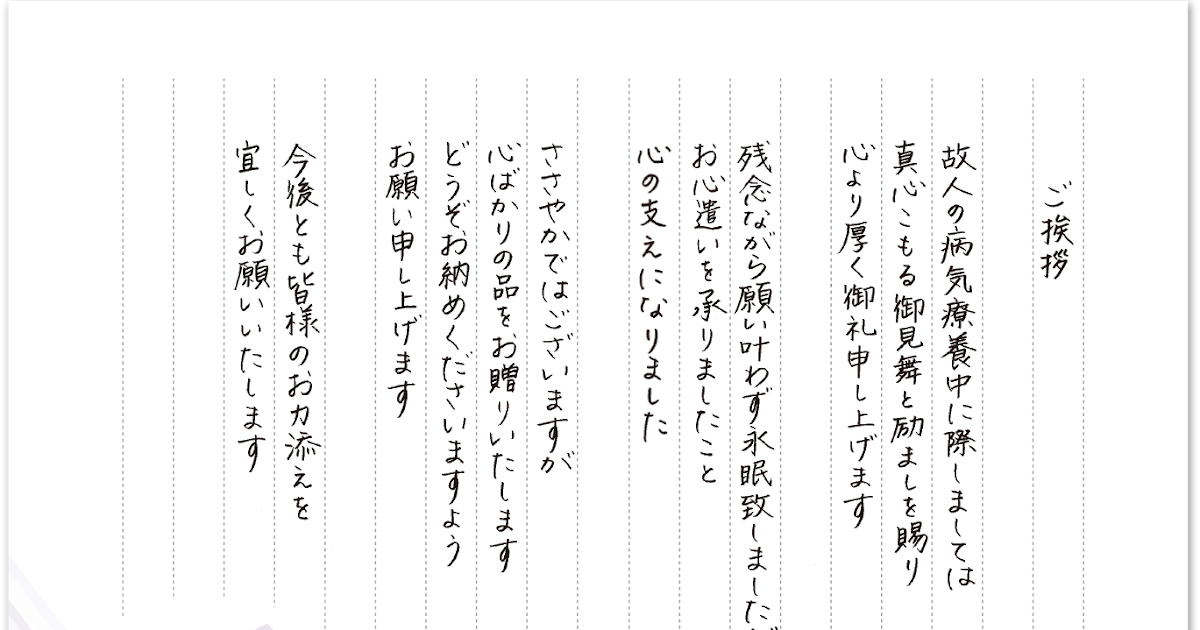 ご挨拶
故人の病気療養中に際しましては
真心こもる御見舞と励ましを賜り
心より厚く御礼申し上げます
残念ながら願い叶わず永眠致しました
お心遣いを承りましたこと
心の支えになりました
ささやかではございますが
心ばかりの品をお贈りいたします
どうぞお納めくださいますよう
お願い申し上げます
今後とも皆様のお力添えを
宜しくお願いいたします